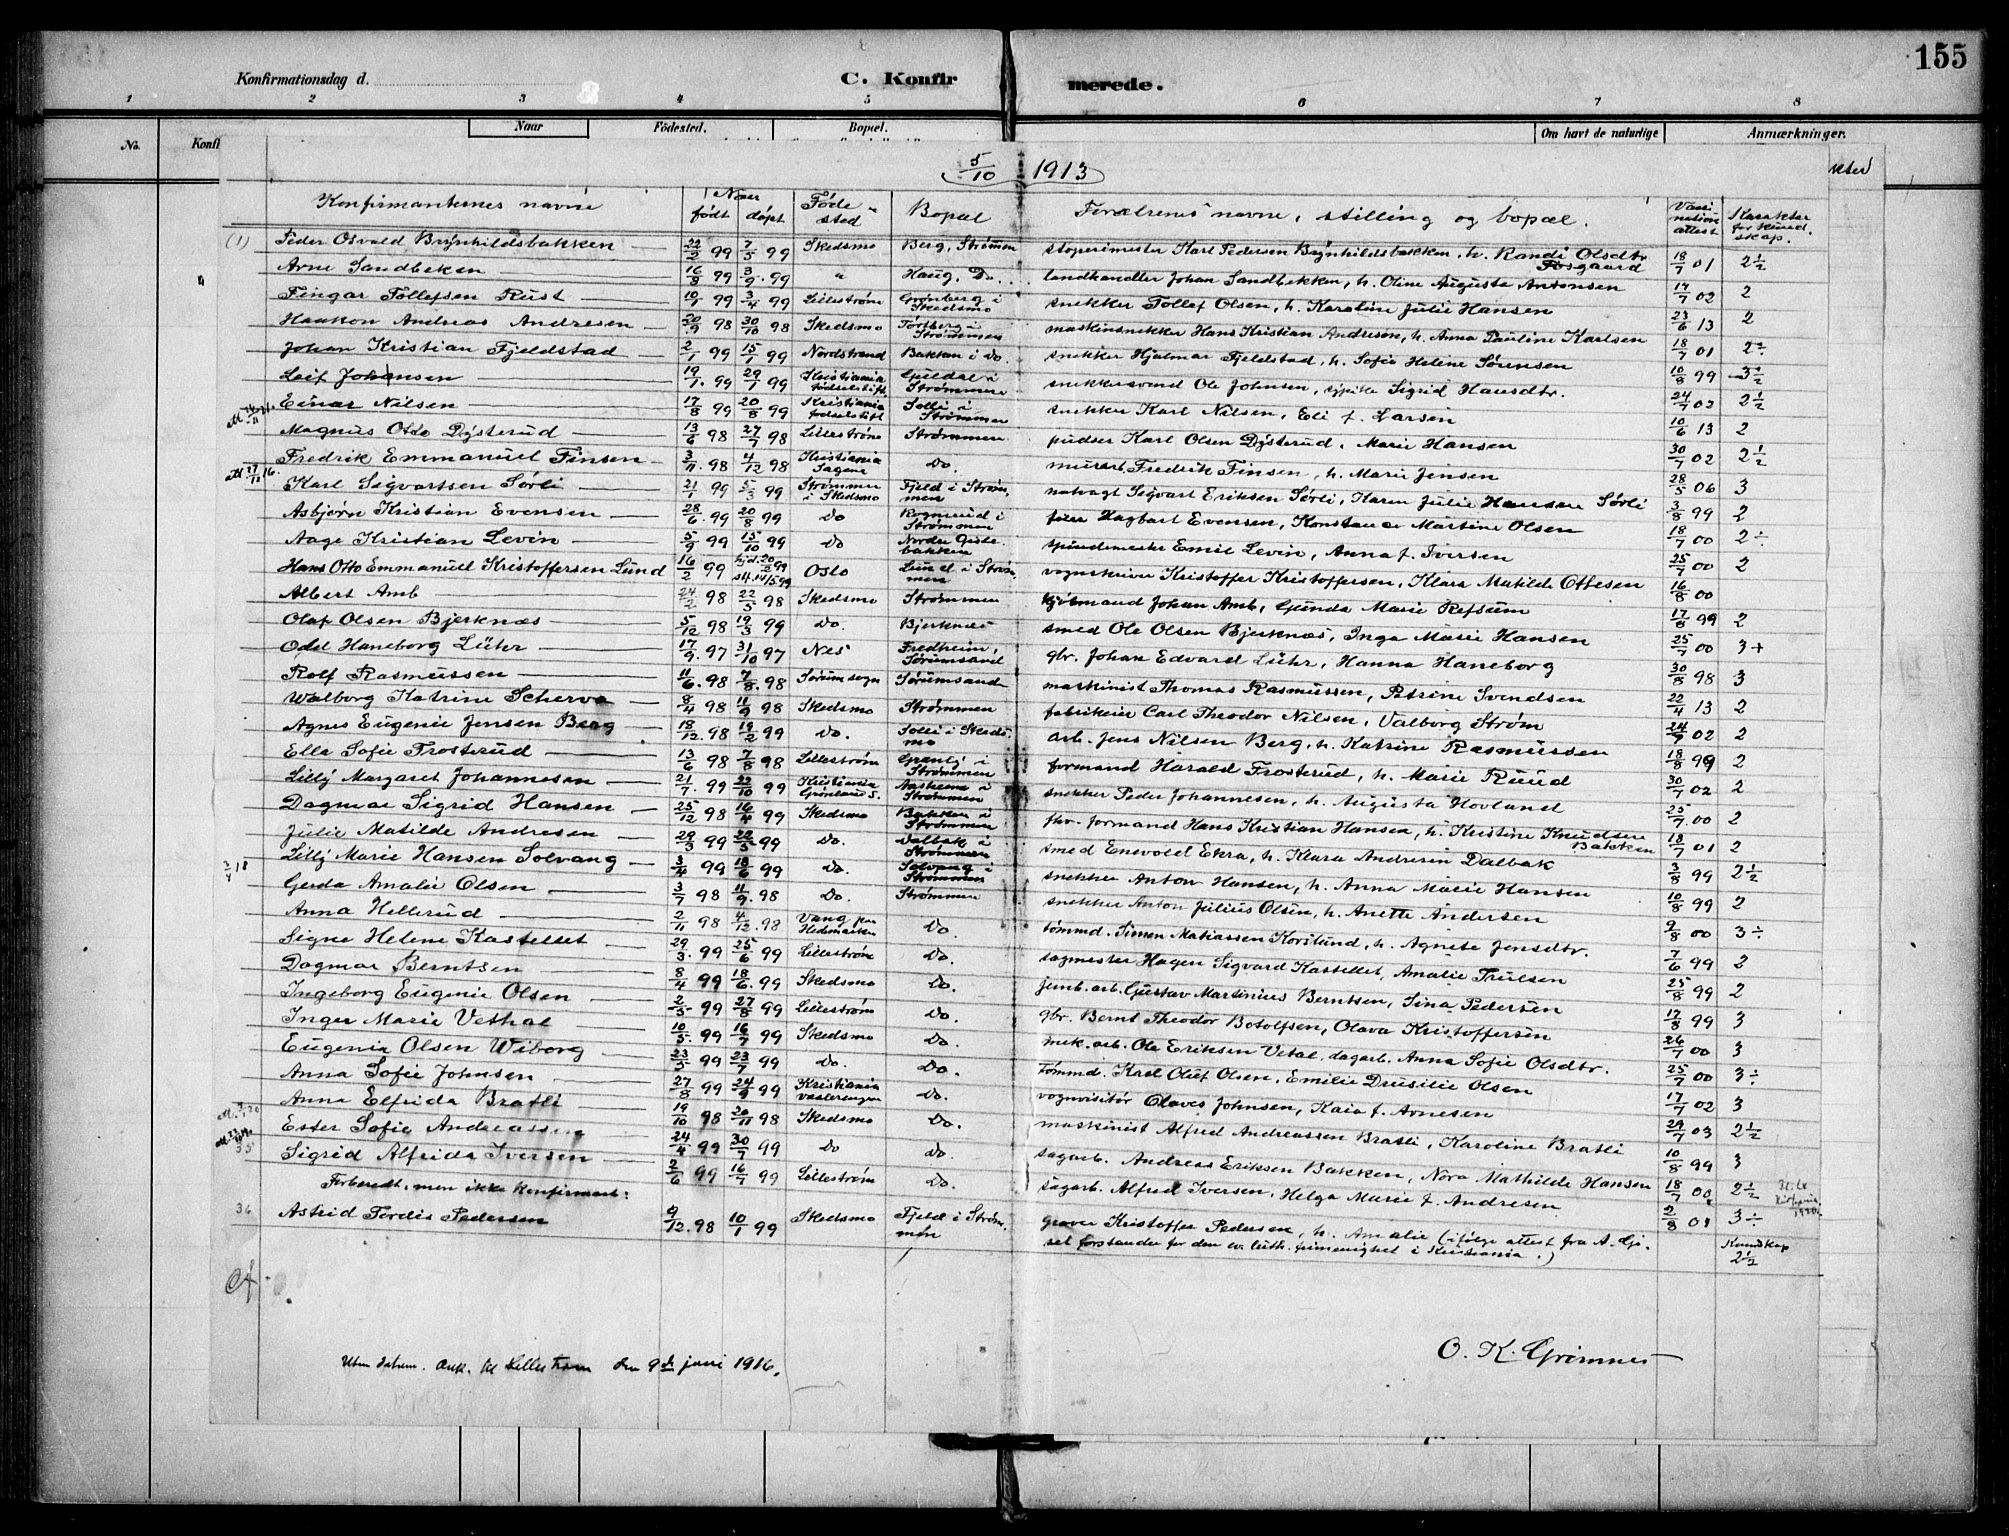 155
Konfirmationsdag d.
C. Konfir
merede.
1 2 3 4 5 6 7 8
No. Konfi Naar Födested. Bopæl. Om havt de naturlige Anmærkninger.
5/10 1913
Konfirmanternes navne Naar født døpt Føde-sted Bopæl Forældrenes navne, stilling og bopæl. Vaccinationsattest Karakter for kundskap.
(1) Peder Osvald Brynhildsbakken 22/2 99 7/5 99 Skedsmo Berg, Strømmen støperimester Karl Pedersen Brynhildsbakken, h. Randi Olsdtr. Fosgaard 18/7 01 2½
Arne Sandbekken 16/8 99 3/9 99 " Haug, Do. landhandler Johan Sandbekken, h. Oline Augusta Antonsen 14/7 02 2
Fingar Tollefsen Rust 99 3/4 99 Lillestrøm Grønberg i Skedsmo snekker Tollef Olsen, h. Karoline Julie Hansen 23/6 13 2
Haakon Andreas Andresen 20/9 98 30/10 98 Skedsmo Torsberg i Strømmen maskinsnekker Hans Kristian Andresen, h. Anna Pauline Karlsen 18/7 01 2÷
Johan Kristian Fjeldstad 2/1 99 15/1 99 Nordstrand Bakken i Do. snekker Hjalmar Fjeldstad, h. Sofie Helene Sørensen 10/8 99 3½
Leif Johansen 19/1 99 29/1 99 Kristiania fødselstift. Guldal i Strømmen snekkersvend Ole Johnsen, Sigrid Hansdtr. 24/7 03 2½
Einar Nilsen 17/8 99 20/8 99 Kristiania fødselstift Solli i Strømmen snekker Karl Nilsen, Eli f. Larsen 10/6 13 2
Magnus Otto Dysterud 13/6 98 27/7 98 Lillestrøm Strømmen pudser Karl Olsen Dysterud, Marie Hansen 30/7 02 2½
Fredrik Emmanuel Finsen 3/11 98 4/12 98 Kristiania Sagene Do. murarb. Fredrik Finsen, h. Marie Jensen 28/5 06 3
Karl Sigvartsen Sørli 21/1 99 5/3 99 Strømmen i Skedsmo Fjeld i Strømmen natvagt Sigvart Eriksen Sørli, Karen Julie Hansen Sørli 3/8 99 2
Asbjørn Kristian Evensen 28/6 99 20/8 99 Do Rognerud i Strømmen feier Hagbart Evensen, Konstance Martine Olsen 18/7 00 2÷
Aage Kristian Levin 5/9 99 15/10 99 Do Nordre Gistebakken Emil Levin, Anna f. Iversen 25/7 00 2
Hans Otto Emmanuel Kristoffersen Lund 16/2 99 hjd. 20/2 99 st. 14/5 99 Oslo Lund i Strømmen vognskriver Kristoffer Kristoffersen, Klara Matilde Ottesen 16/8 00
Albert Amb 24/2 98 22/5 98 Skedsmo Strømmen Johan Amb, Gunda Marie Refsum 17/8 99 2
Olaf Olsen Bjerknæs 5/12 98 19/3 99 Do. Bjerknæs smed Ole Olsen Bjerknæs, Inga Marie Hansen 25/7 00 3+
Odd Haneborg Lühr 17/9 97 31/10 97 Nes Fredheim, Sørumsand gbr. Johan Edvard Lühr, Hanna Haneborg 30/8 98 3
Rolf Rasmussen 11/6 98 7/8 98 Sørum sogn Sørumsand maskinist Thomas Rasmussen, Petrine Svendsen 22/4 13 2
Walborg Katrine Scherva 8/4 98 11/9 98 Skedsmo Strømmen fabrikeier Carl Theodor Nilsen, Valborg Strøm 24/7 02 2
Agnes Eugenie Jensen Berg 18/12 98 19/2 99 Do. Solli i Skedsmo arb. Jens Nilsen Berg, h. Katrine Rasmussen 18/8 99 2
Ella Sofie Frosterud 13/6 98 7/8 98 Lillestrøm Granly i Strømmen formand Harald Frosterud, h. Marie Ruud 30/7 02 2
Lilly Margaret Johannesen 21/7 99 22/10 99 Kristiania Grønland S. Aasheim i Strømmen snekker Peder Johannesen, h. Augusta Hovland 25/7 00 2
Dagmar Sigrid Hansen 25/12 98 16/4 99 Skedsmo Bakken i Strømmen fhv. formand Hans Kristian Hansen, h. Kristine Knudsen Bakken 18/7 01 2
Julie Matilde Andresen 29/3 99 22/5 99 Do. Dalbak i Strømmen smed Enevold Ekra, h. Klara Andresen Dalbak 3/8 99 2½
Lilly Marie Hansen Solvang 3/4 99 18/6 99 Do. Solvang i Strømmen snekker Anton Hansen, h. Anna Marie Hansen 10/8 99 2
Gerda Amalie Olsen 3/7 98 11/9 98 Do. Strømmen snekker Anton Julius Olsen, h. Anette Andersen 9/8 00 3÷
Anna Hellerud 2/11 98 4/12 98 Vang paa Hedmarken Do. tømmd. Simen Matiassen Korslund, h. Agnete Jensdtr. 7/6 99 2
Signe Helene Kastellet 29/3 99 25/6 99 Lillestrøm Do. sagmester Hagen Sigvard Kastellet, Amalie Trulsen 25/8 99 2
Dagmar Berntsen 8/4 99 18/6 99 Skedsmo Do. jernb. arb. Gustav Martinius Berntsen, Lina Pedersen 17/8 99 3
Ingeborg Eugenie Olsen 2/5 99 27/8 99 Lillestrøm Do. gbr. Bernt Theodor Botolfsen, Olava Kristoffersen 26/7 00 3
Inger Marie Vethal 10/5 99 16/7 99 Skedsmo Do. mek. arb. Ole Eriksen Vetal, dagarb. Anna Sofie Olsdtr. 25/7 00 3÷
Eugenia Olsen Wiborg 23/5 99 23/7 99 Do. Do. tømmd. Karl Oluf Olsen, Emilie Drusilie Olsen 17/7 02 3
Anna Sofie Johnsen 27/8 99 24/9 99 Kristiania Vaalerengen Do. vognvisitør Olaves Johnsen, Kaia f. Arnesen 29/7 03 2½
Anna Elfrida Bratli 19/10 98 20/11 98 Skedsmo Do. maskinist Alfred Andreassen Bratli, Karoline Bratli 10/8 99 3
Ester Sofie Andreassen 24/4 99 30/7 99 Do Do. sagarb. Andreas Eriksen Bakken, Nora Mathilde Hansen 18/7 00 2½
35 Sigrid Alfrida Iversen 2/6 99 16/7 99 Lillestrøm Do. sagarb. Alfred Iversen, Helga Marie f. Andresen 2/8 01 3÷
Forberedt, men ikke konfirmert:
36 Astrid Tordis Pedersen 9/12 98 10/1 99 Skedsmo Fjeld i Strømmen graver Kristoffer Pedersen, h. Amalie (ifølge attest fra A. Gjesel forstander for den ev. luth. frimenighet i Kristiania.) Kundskap 2½
O. K. Grimnes
Uten datum. Ank. til Lillestrøm den 9de juni 1916.